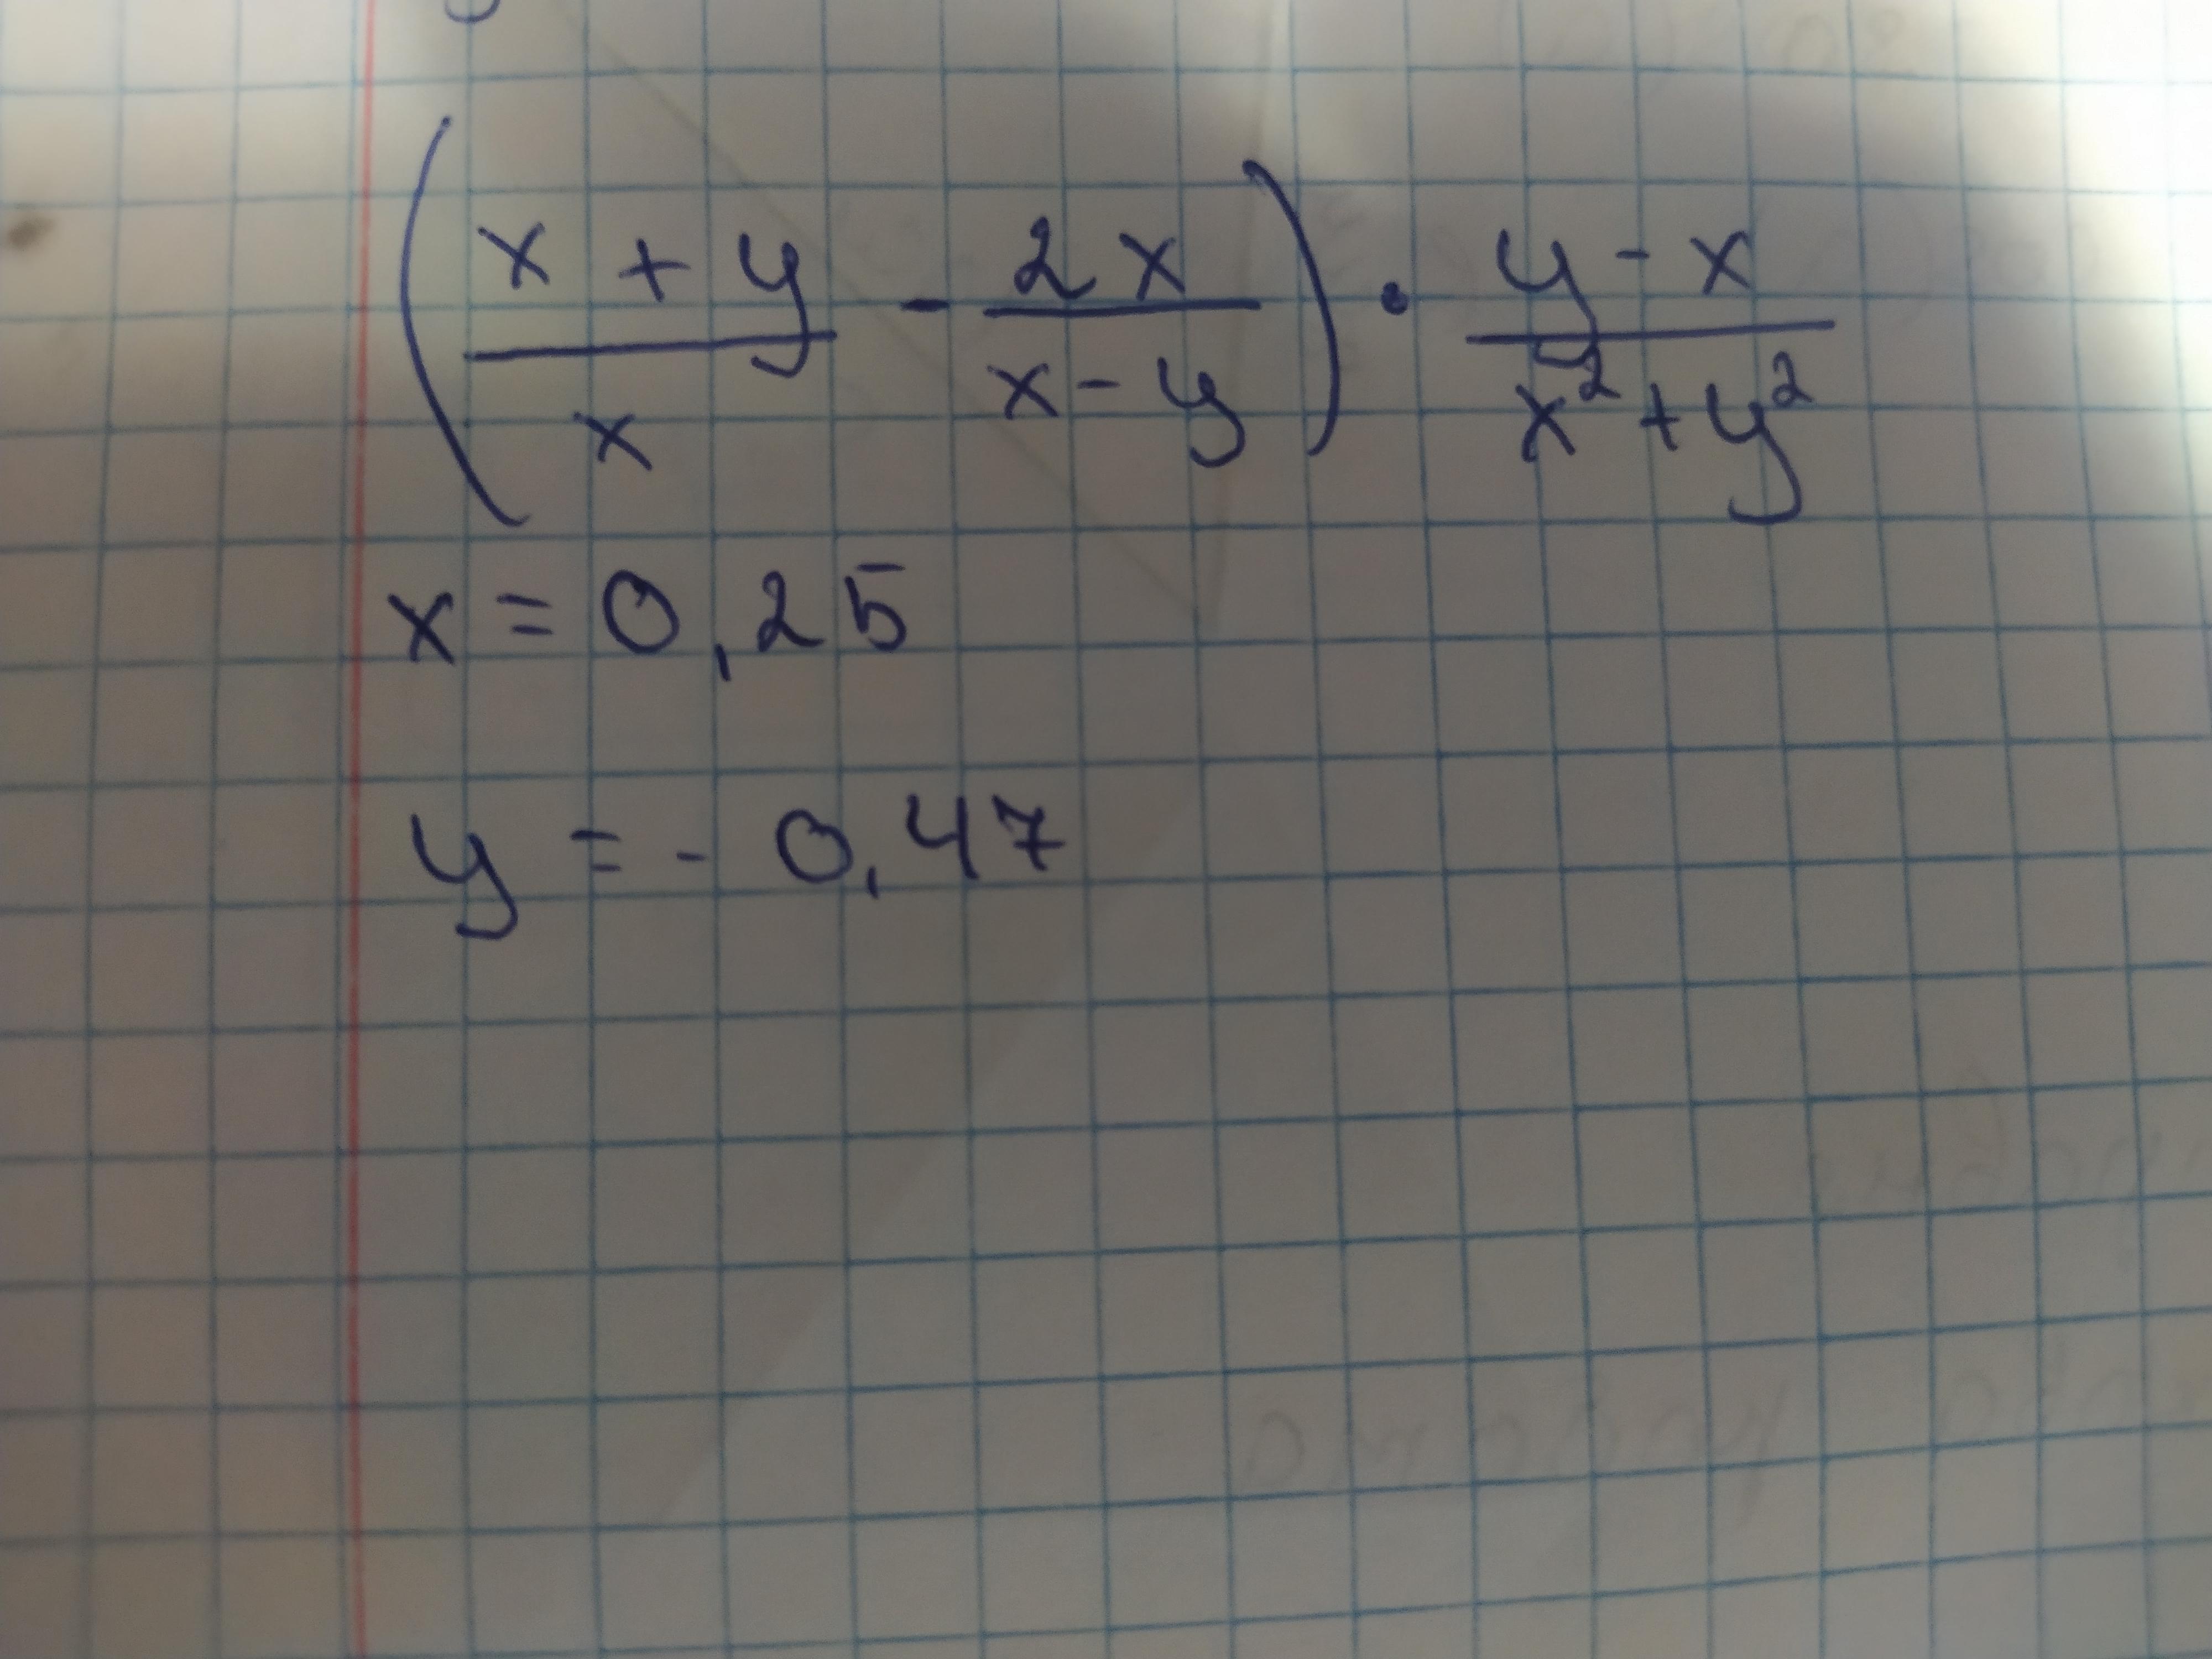 (x + y / x - 2x / x - y) · y - x / x² + y²
x = 0,25
y = - 0,47